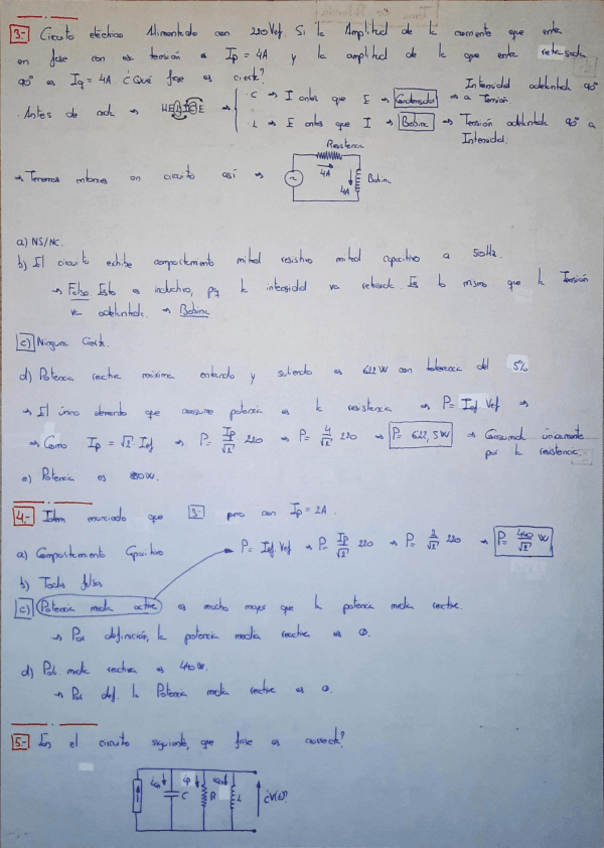 3.- Circuito eléctrico Alimentado con 220Vef. Si la Amplitud de la corriente que entra
en fase con esa tensión es Ip = 4A y la amplitud de la que entra retrasada
90° es Iq = 4A. ¿Qué frase es cierta?
· Antes de nada → → C → I antes que E → Condensador → Intensidad adelantada 90° a Tensión
L → E antes que I → Bobina → Tensión adelantada 90° a Intensidad.
Resistencia
→ Tenemos entonces un circuito así → ~ 4A 4A Bobina
a) NS/NC.
b) El circuito exhibe comportamiento mitad resistivo mitad capacitivo a 50Hz.
→ Falso. Esto es inductivo, pq la intensidad va retrasada. Es lo mismo que la Tensión
va adelantada. → Bobina
c) Ninguna Cierta.
d) Potencia reactiva máxima entrando y saliendo es 622W con tolerancia del 5%
→ El único elemento que consume potencia es la resistencia → P = Ief Vef →
→ Como Ip = √2 Ief → P = Ip/√2 220 → P = 4/√2 220 → P = 622,5W → Consumida únicamente por la resistencia.
e) Potencia es 880W.
4.- Idem enunciado que 3- pero con Ip = 2A.
a) Comportamiento Capacitivo P = Ief. Vef → P = Ip/√2 220 → P = 2/√2 220 → P = 440/√2 W
b) Todas falsas
c) Potencia media activa es mucho mayor que la potencia media reactiva.
→ Por definición, la potencia media reactiva es 0.
d) Pot. media reactiva es 440W.
→ Por def. la Potencia media reactiva es 0.
5.- En el circuito siguiente, que frase es correcta?
C R L